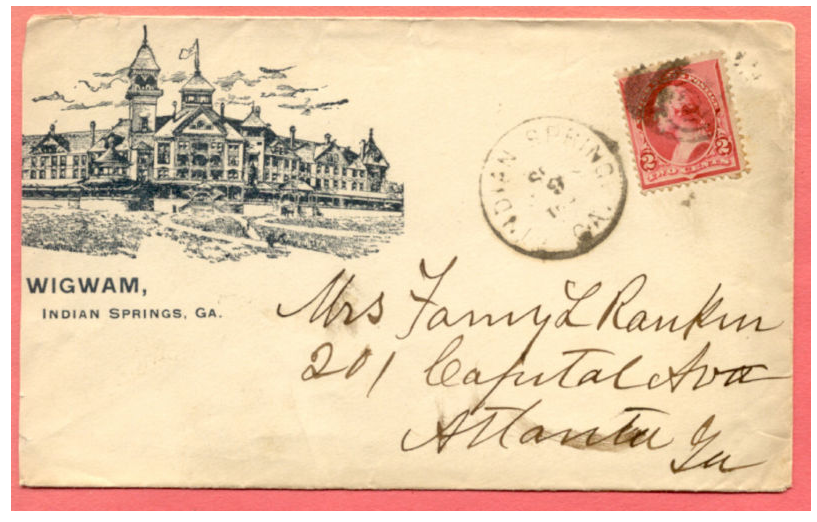 WIGWAM,
INDIAN SPRINGS, GA.
INDIAN SPRING
2 2
TWO CENTS
Mrs Fanny L Rankin
201 Capital Ave
Atlanta
Ga